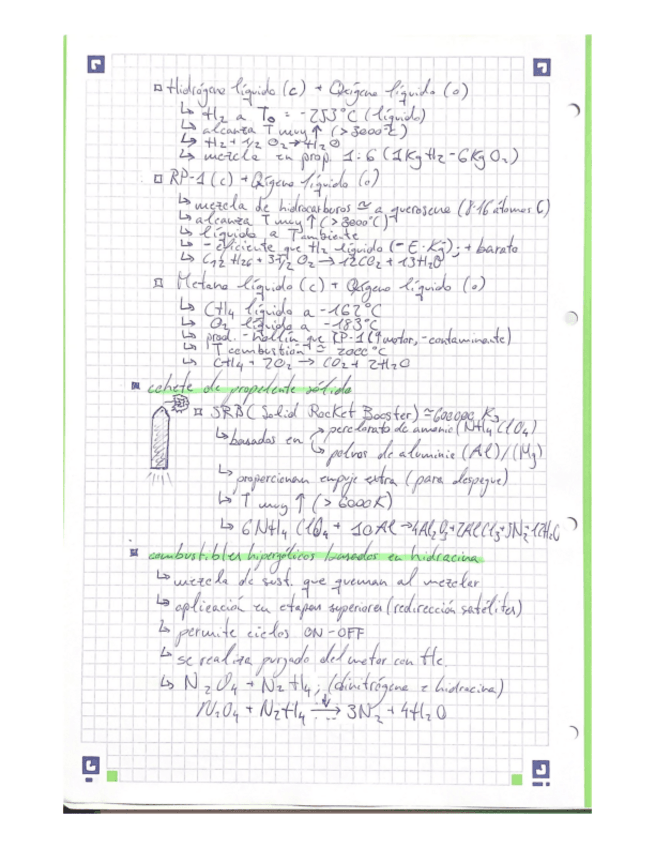 ▫ Hidrógeno líquido (c) + Oxígeno líquido (o)
↳ H2 a T0 = -253°C (líquido)
↳ alcanza T muy ↑ (>3000°C)
↳ H2 + 1/2 O2 → H2O
↳ mezcla en prop. 1:6 (1Kg H2 - 6Kg O2)
▫ RP-1 (c) + Oxígeno líquido (o)
↳ mezcla de hidrocarburos ≅ a queroseno (8-16 átomos C)
↳ alcanza T muy ↑ (>3000°C)
↳ líquido a Tambiente
↳ - eficiente que H2 líquido (- E·Kg); + barato
↳ C12H26 + 37/2 O2 → 12CO2 + 13H2O
▫ Metano líquido (c) + Oxígeno líquido (o)
↳ CH4 líquido a -162°C
↳ O2 líquido a -183°C
↳ prod. - hollín que RP-1 (↑motor, -contaminante)
↳ T combustión ≅ 2000°C
↳ CH4 + 2O2 → CO2 + 2H2O
▪ cohete de propelente sólido
▫ SRB (Solid Rocket Booster) ≅ 600000 Kg
↳ basados en → perclorato de amonio (NH4ClO4)
↳ polvos de aluminio (Al)/(Mg)
↳ proporcionan empuje extra (para despegue)
↳ T muy ↑ (>6000K)
↳ 6NH4ClO4 + 10Al → 4Al2O3 + 2AlCl3 + 3N2 + 12H2O
▪ combustibles hipergólicos basados en hidracina
↳ mezcla de sust. que queman al mezclar
↳ aplicación en etapas superiores (redirección satélites)
↳ permite ciclos ON-OFF
↳ se realiza purgado del motor con He.
↳ N2O4 + N2H4; (dinitrógeno e hidracina)
N2O4 + N2H4 → 3N2 + 4H2O